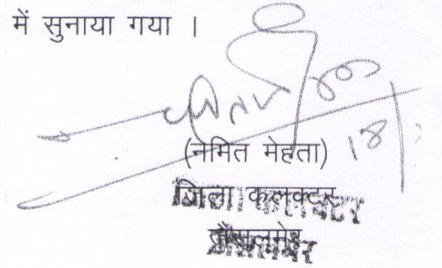 में सुनाया गया ।
(नमित मेहता)
18/
जिला कलक्टर
जैसलमेर